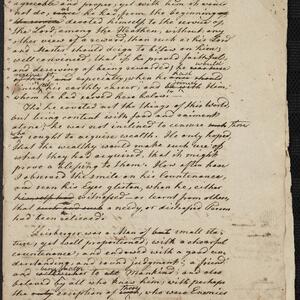 agreeable and proper, yet with him it would
devoted himself to the service of
the Lord, among the Heathen, without any
other views of a reward than such as his Lord
and Master should deign to bestow on him;
well convinced, that if he proved faithful,
and deserving of being rewarded, he
and especially, when he
his earthly career, and be with Him,
whom he had served here below.
Tho he coveted not the things of this World
but being content with food and raiment
alone; he was not inclined to censure such, there
who sought to acquire wealth. He only hoped
that the wealthy would make such use of
what they had acquired, that it might
prove a blessing to them. How often have
I observed the smile on his Countenance,
and seen his Eyes glisten, when he, either
witnessed or learnt from others,
that a needy, or distressed Person
had been relieved.
Zeisberger was a Man of small sta-
ture, yet well proportioned, with a chearful
countenance; and endowed with a good un-
derstanding, and sound judgment; a friend
and to all Mankind; and also
beloved by all who knew him; with perhaps
the exception of those, who were Enemies